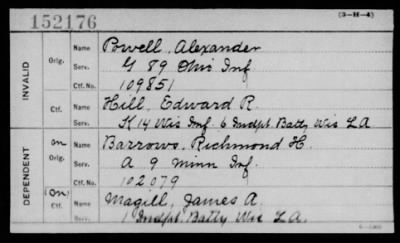 152176
(3-H-4)
INVALID
Orig.
Name Powell, Alexander
Serv. G 89 Ohio Inf
Ctf. No. 109851
Ctf.
Name Hill, Edward R.
Serv. K 14 Wis Inf. 6 Indpt. Batty Wis L A
DEPENDENT
on
Orig.
Name Barrows, Richmond H.
Serv. A 9 Minn Inf.
Ctf. No. 102079
(on)
Ctf.
Name Magill, James A.
Serv. 1 Indpt. Batty Wis L A.